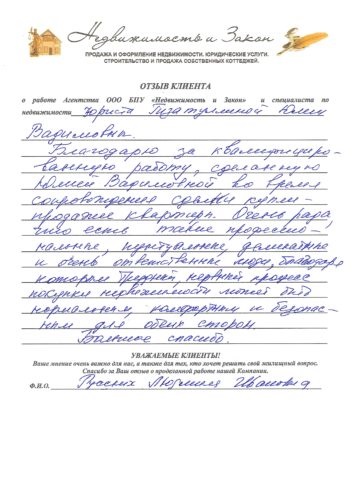 Недвижимость и Закон
ПРОДАЖА И ОФОРМЛЕНИЕ НЕДВИЖИМОСТИ. ЮРИДИЧЕСКИЕ УСЛУГИ.
СТРОИТЕЛЬСТВО И ПРОДАЖА СОБСТВЕННЫХ КОТТЕДЖЕЙ.
ОТЗЫВ КЛИЕНТА
о работе Агентства ООО БПУ «Недвижимость и Закон» и специалиста по
недвижимости юриста Гизатуллиной Юлии
Вадимовны.
Благодарю за квалифициро-
ванную работу, сделанную
Юлией Вадимовной во время
сопровождения сделки купли-
продажи квартиры. Очень рада,
что есть такие профессио-
нальные, пунктуальные, деликатные
и очень ответственные люди, благодаря
которым трудный, нервный процесс
покупки недвижимости может быть
нормальным, комфортным и безопас-
ным для обеих сторон.
Большое спасибо.
УВАЖАЕМЫЕ КЛИЕНТЫ!
Ваше мнение очень важно для нас, а также для тех, кто хочет решить свой жилищный вопрос.
Спасибо за Ваш отзыв о проделанной работе нашей Компании.
Ф.И.О. Русских Людмила Ивановна